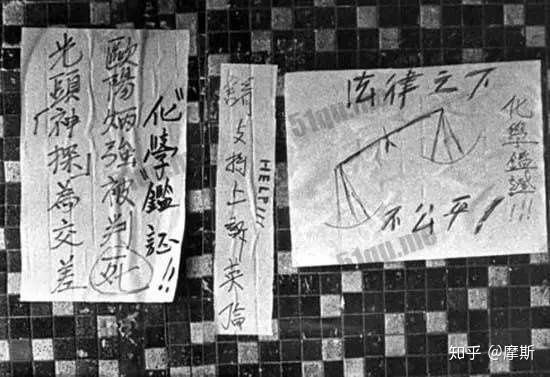 “化學”鑑証!!
歐陽炳強被判死
光頭「神探」為交差
HELP!!!
請支持上訴英倫
法律之下
不公平!
化學鑑證!!!
51qu.me
51qu.me
51qu.me
知乎 @摩斯